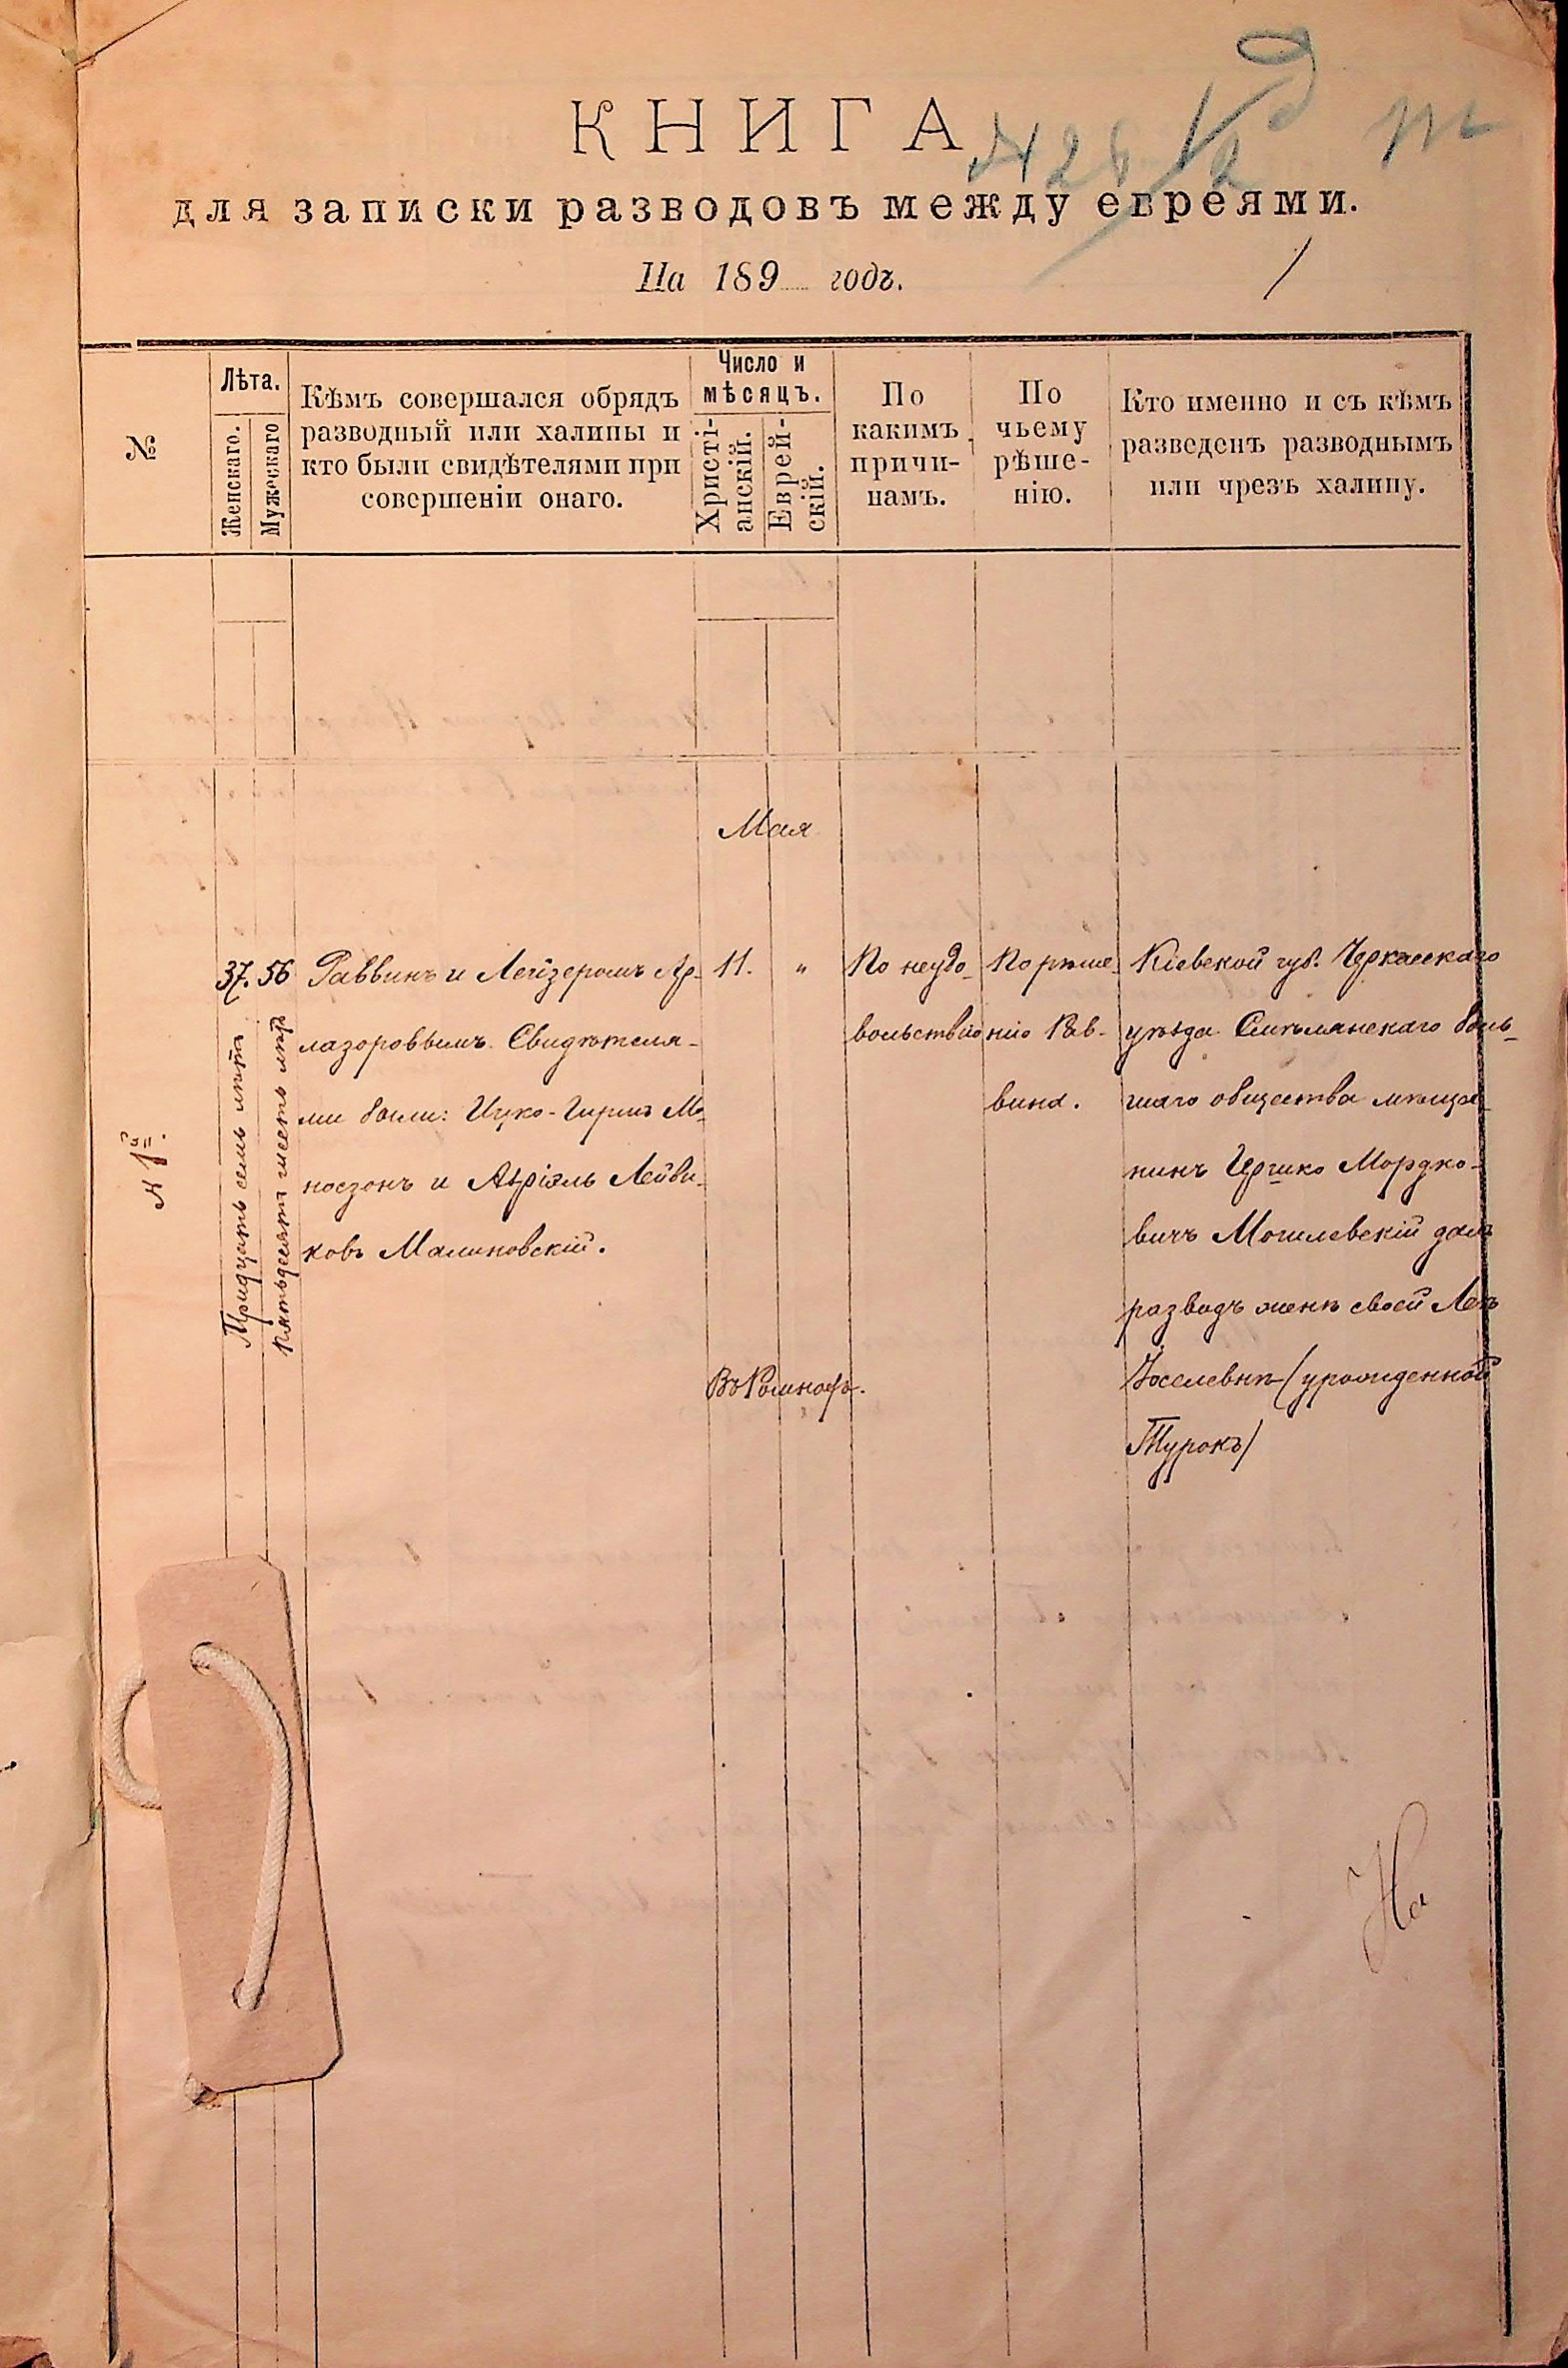 КНИГА
для записки разводовъ между евреями.
На 189 годъ.
№
Лѣта.
Женскаго.
Мужескаго
Кѣмъ совершался обрядъ
разводный или халицы и
кто были свидѣтелями при
совершеніи онаго.
Число и
мѣсяцъ.
Христі-
анскій.
Еврей-
скій.
По
какимъ
причи-
намъ.
По
чьему
рѣше-
нію.
Кто именно и съ кѣмъ
разведенъ разводнымъ
или чрезъ халицу.
Мая
№ 1й.
37.
Тридцать семь лѣтъ
56
Пятьдесятъ шесть лѣтъ
Раввинъ и Лейзеромъ Ар-
лазоровымъ. Свидѣтеля-
ми были: Ицко-Гиршъ Мо-
носзонъ и Авріэль Лейви-
ковъ Малиновскій.
11. "
Въ Ромнахъ.
По неудо-
вольствію
По рѣше-
нію Рав-
вина.
Кіевской губ. Черкасскаго
уѣзда Смѣлянскаго быв-
шаго общества мѣща-
нинъ Гершко Мордко-
вичъ Могилевскій далъ
разводъ женѣ своей Леѣ
Іоселевнѣ (урожденной
Турокъ)
На